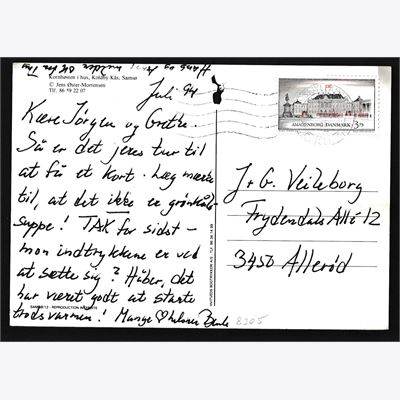 Kornhøsten i hus, Koldby Kås, Samsø
© Jens Øster-Mortensen
Tlf. 86 59 22 07
Juli 94
Kære Jörgen og Grethe.
Så er det jeres tur til
at få et kort. Læg mærke
til, at det ikke er grønkål-
suppe! TAK for sidst –
mon indtrykkene er ved
at sætte sig? Håber, det
har været godt at starte
trods varmen! Mange hilsner
8305
AMALIENBORG DANMARK 3.75
J+G. Veileborg
Frydendals Allé 12
3450 Allerød